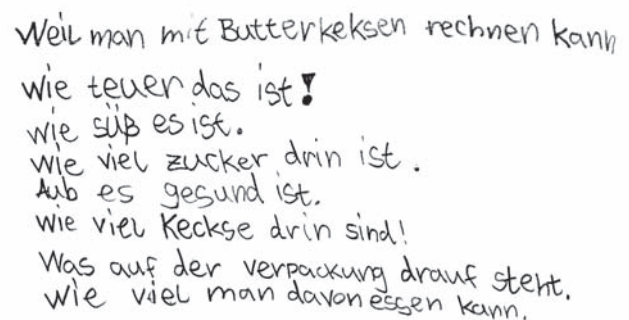 Weil man mit Butterkeksen rechnen kann
wie teuer das ist!
wie süß es ist.
wie viel zucker drin ist.
Aub es gesund ist.
wie viel Keckse drin sind!
Was auf der verpackung drauf steht.
wie viel man davon essen kann.